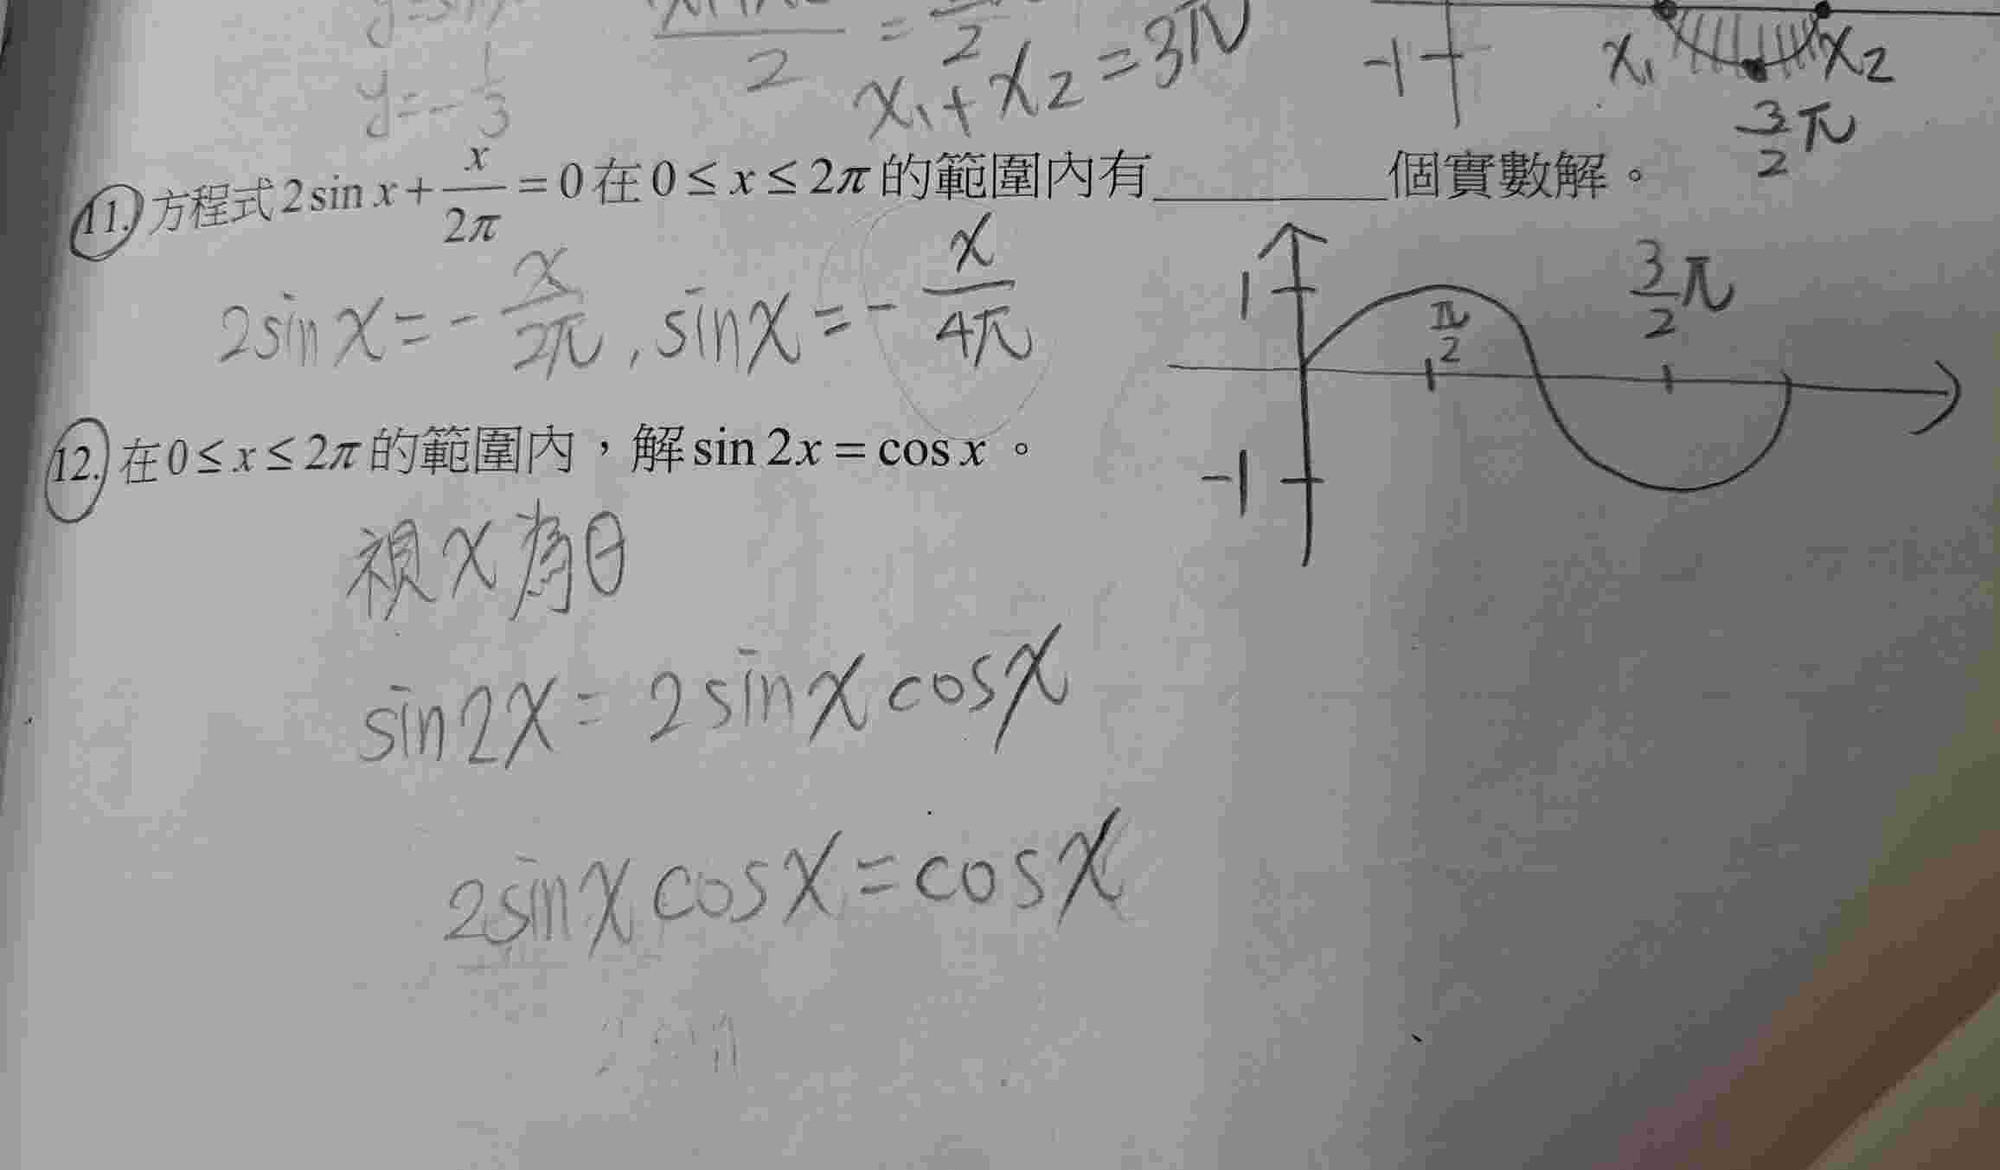 y=-1/3
2 = 2
x₁+x₂=3π
-1 x₁ x₂
3/2 π
11. 方程式 2 sin x + x/2π = 0 在 0 ≤ x ≤ 2π 的範圍內有________個實數解。
2sinx=-x/2π , sinx=-x/4π
1 π/2 3/2 π
-1
12. 在 0 ≤ x ≤ 2π 的範圍內，解 sin 2x = cos x 。
視x為θ
sin2x=2sinxcosx
2sinxcosx=cosx